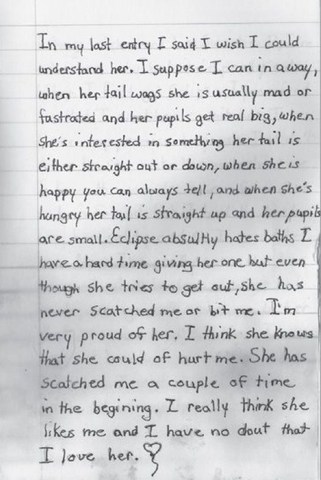 In my last entry I said I wish I could
understand her. I suppose I can in a way,
when her tail wags she is usually mad or
fastrated and her pupils get real big, when
she's interested in something her tail is
either straight out or down, when she is
happy you can always tell, and when she's
hungry her tail is straight up and her pupils
are small. Eclipse absultly hates baths I
have a hard time giving her one but even
though she tries to get out, she has
never scatched me or bit me. I'm
very proud of her. I think she knows
that she could of hurt me. She has
scatched me a couple of time
in the begining. I really think she
likes me and I have no dout that
I love her.